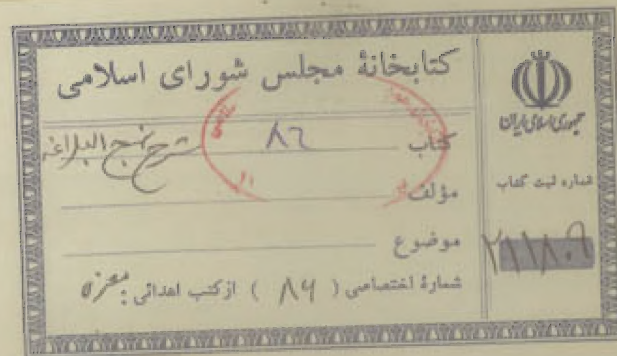 کتابخانهٔ مجلس شورای اسلامی
کتاب ۸۶ شرح نهج البلاغه
مؤلف
موضوع
شمارهٔ اختصاصی ( ۸۶ ) از کتب اهدائی :
جمهوری اسلامی ایران
شماره ثبت کتاب